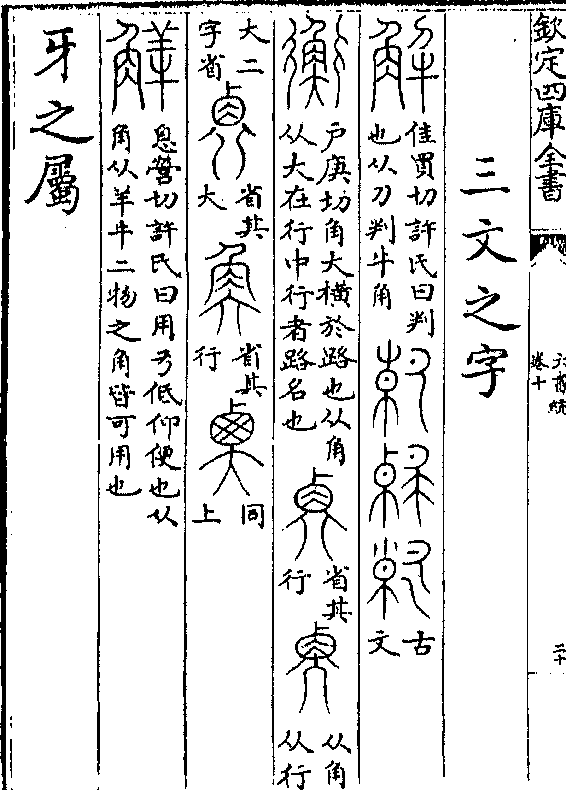 欽定四庫全書
六書統
卷十
二十
三文之字
解 佳買切許氏曰判
也从刀判牛角
古
文
衡 户庚切角大橫於路也从角
从大在行中行者路名也
省其
行
从角
从行
大二
字省
省其
大
省其
行
同
上
觲 息營切許氏曰用弓低仰便也从
角从羊牛二物之角皆可用也
牙之屬